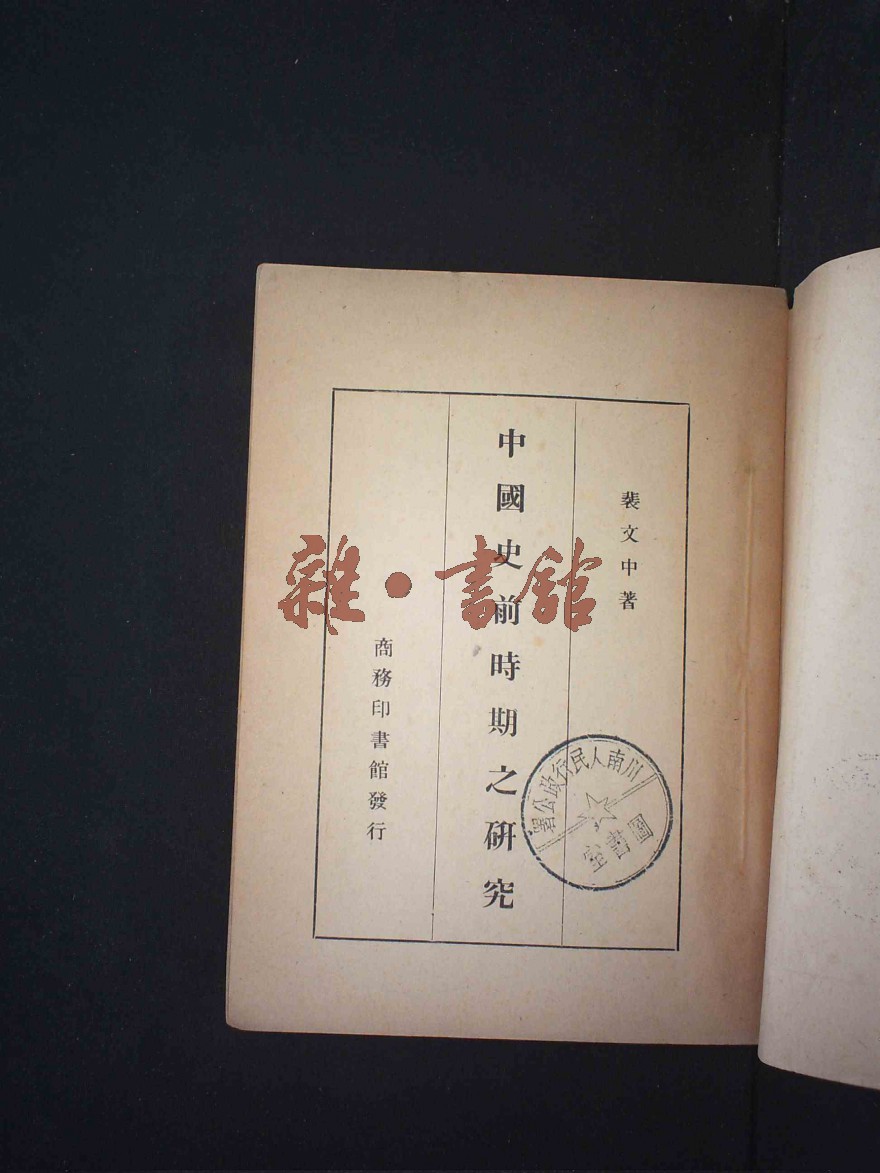 裴文中著
中國史前時期之研究
商務印書館發行
川南人民行政公署
圖書室
雜·書館